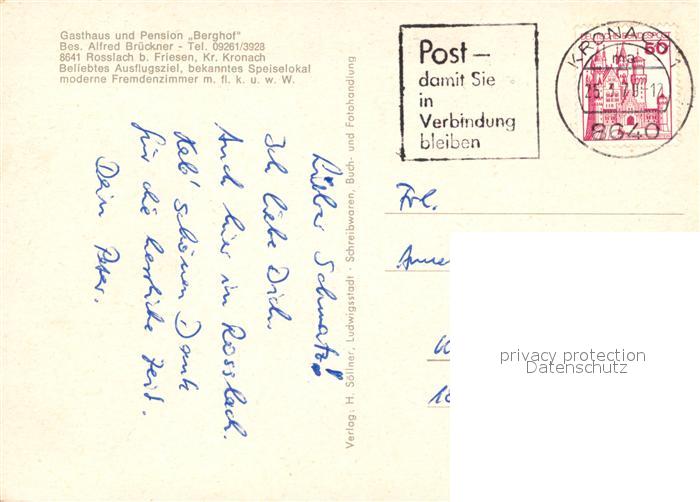 Gasthaus und Pension „Berghof"
Bes. Alfred Brückner - Tel. 09261/3928
8641 Rosslach b. Friesen, Kr. Kronach
Beliebtes Ausflugsziel, bekanntes Speiselokal
moderne Fremdenzimmer m. fl. k. u. w. W.
Post –
damit Sie
in
Verbindung
bleiben
KRONACH 1
8640
50
Lieber Schmatz!
Ich liebe Dich.
Auch hier in Rosslach.
Hab' schönen Dank
für die herrliche Zeit.
Dein Peter.
Verlag: H. Söllner, Ludwigsstadt · Schreibwaren, Buch- und Fotohandlung
Frl.
privacy protection
Datenschutz